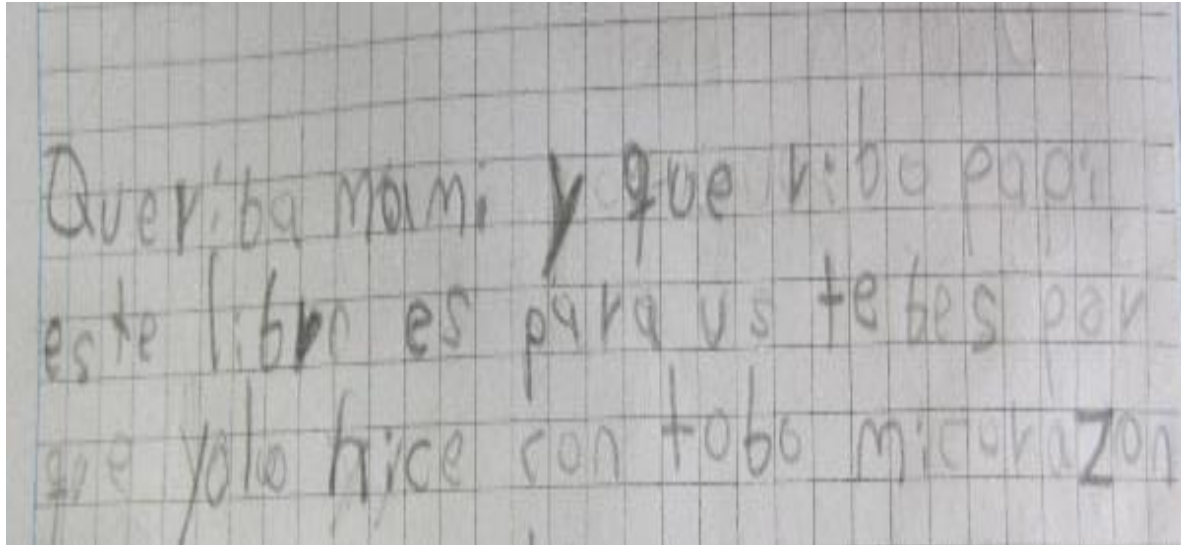 Queriba mami y que ribo papi
este libro es para us tebes por
que yolo hice con tobo micorazon